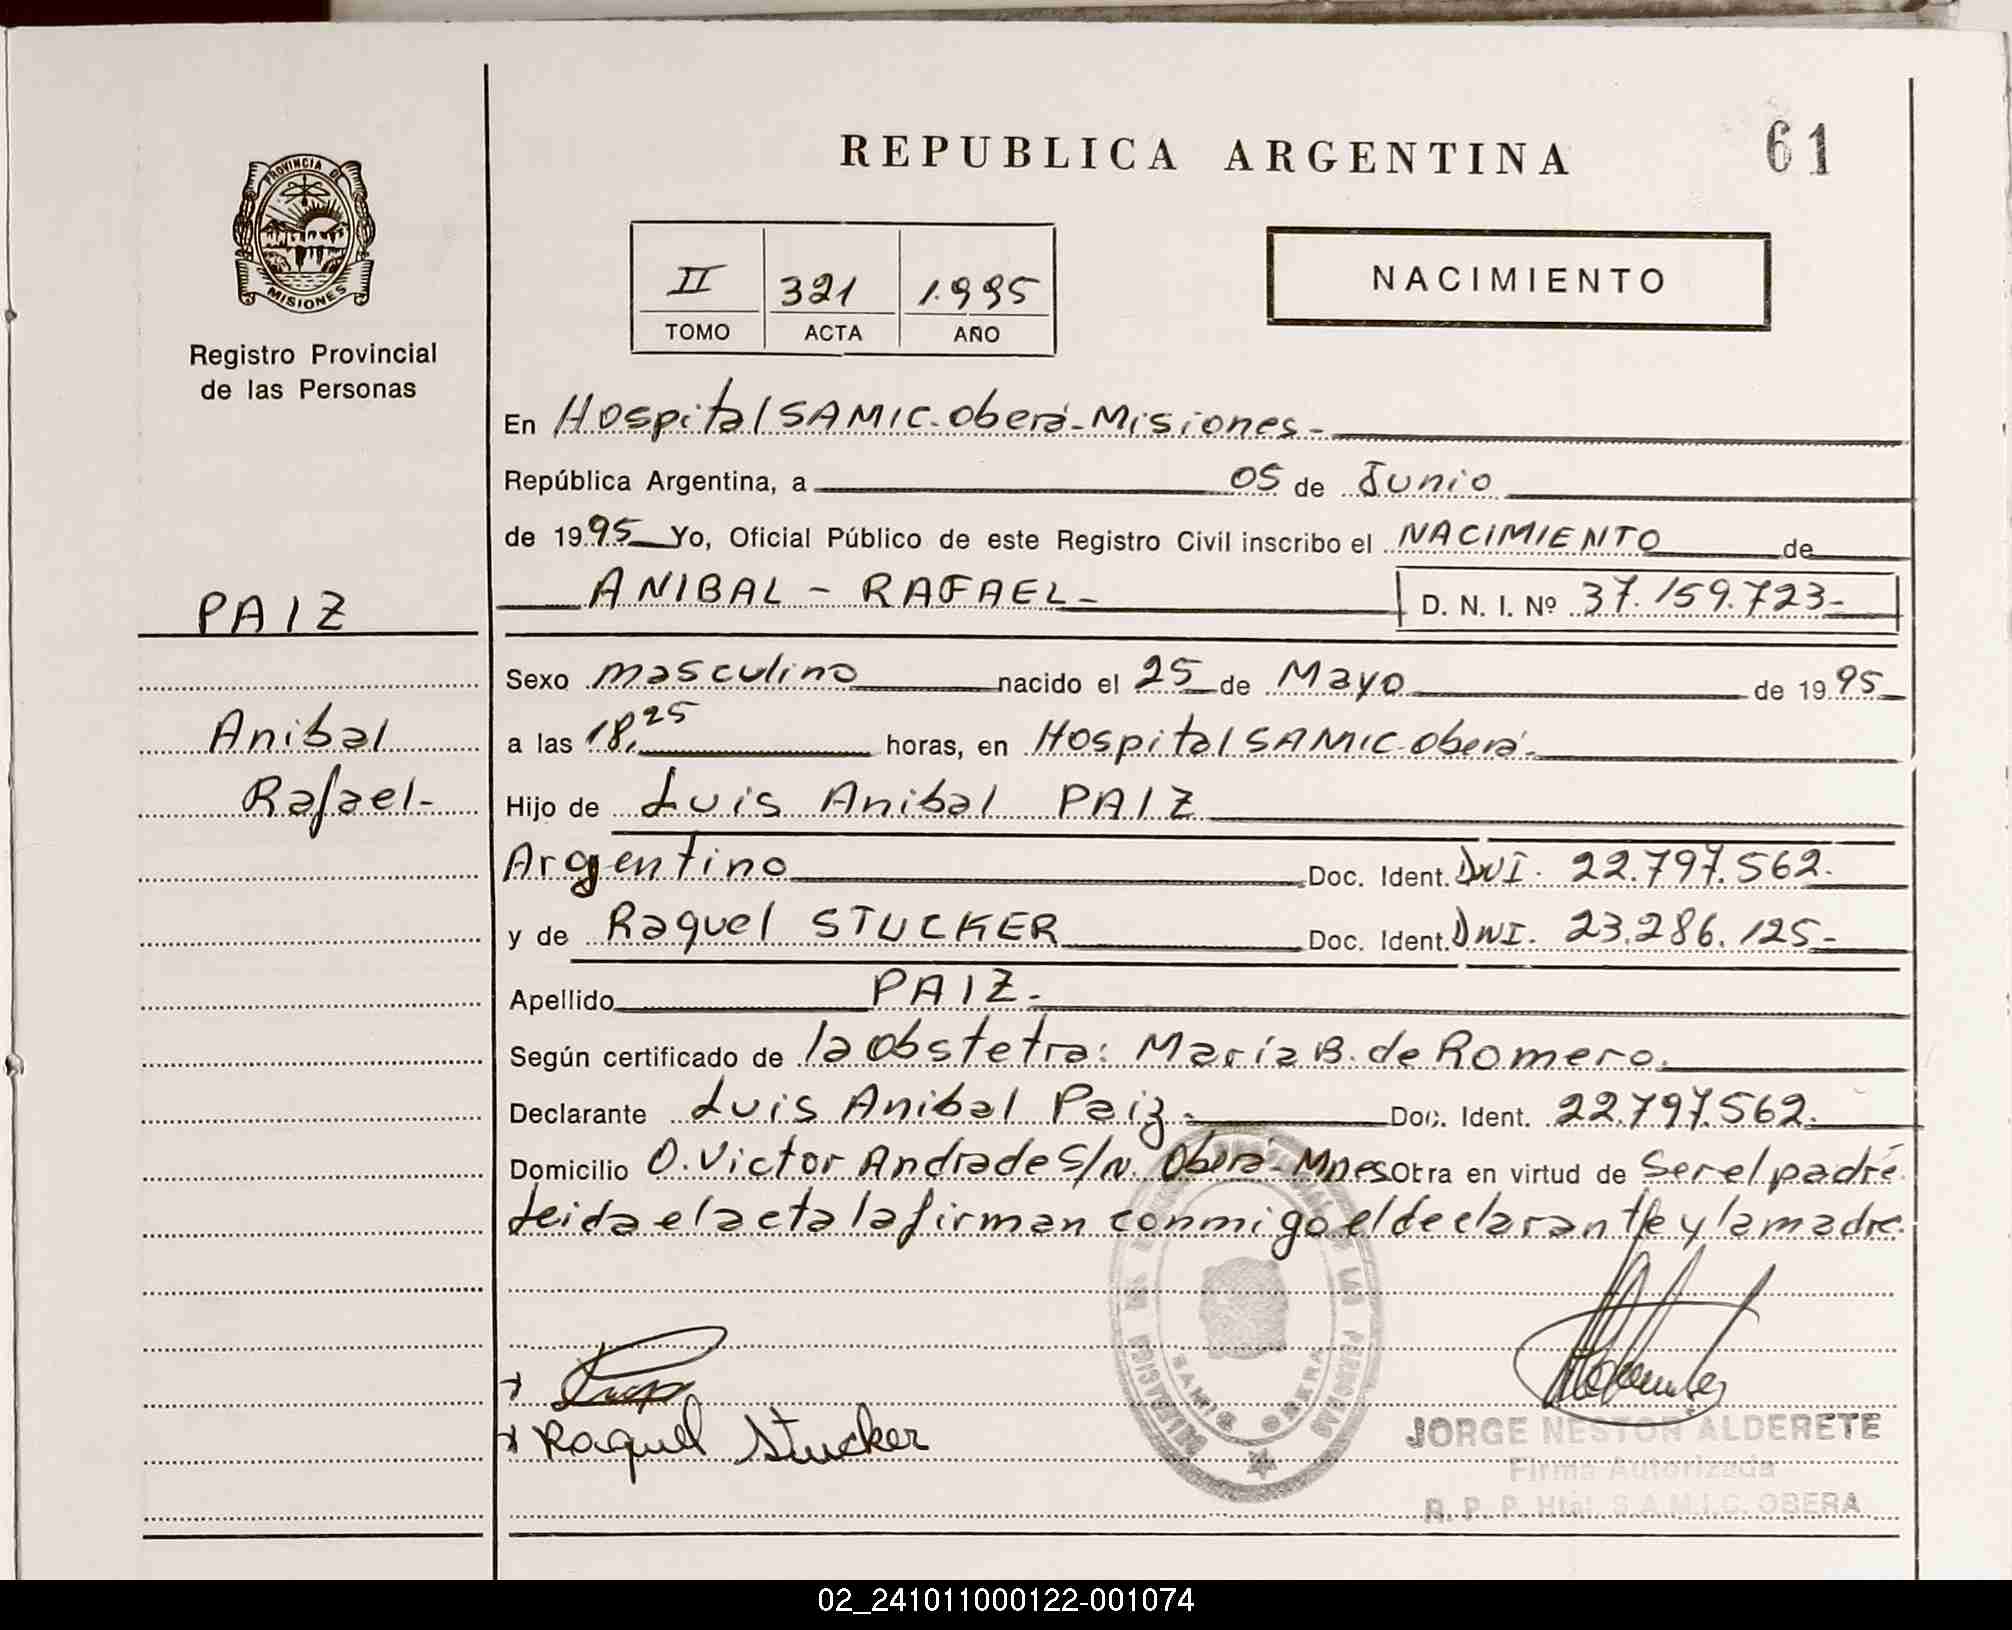 REPUBLICA ARGENTINA
61
PROVINCIA DE
MISIONES
Registro Provincial
de las Personas
II 321 1.995
TOMO ACTA AÑO
NACIMIENTO
En Hospital SAMIC. Oberá - Misiones -
República Argentina, a 05 de Junio
de 1995 Yo, Oficial Público de este Registro Civil inscribo el NACIMIENTO de
PAIZ
ANIBAL - RAFAEL - D. N. I. Nº 37.159.723-
Sexo masculino nacido el 25 de Mayo de 1995
Anibal
a las 18,25 horas, en Hospital SAMIC. Oberá.
Rafael-
Hijo de Luis Anibal PAIZ
Argentino Doc. Ident. DNI. 22.797.562.
y de Raquel STUCKER Doc. Ident. DNI. 23.286.125-
Apellido PAIZ.
Según certificado de la obstetra: María B. de Romero.
Declarante Luis Anibal Paiz - Doc. Ident. 22.797.562.
Domicilio O. Victor Andrade S/N. Oberá - Mnes Obra en virtud de ser el padre
leida el acta la firman conmigo el declarante y la madre.
Raquel Stucker
SAMIC OBERA
JORGE NESTOR ALDERETE
Firma Autorizada
R. P. P. Htal. S.A.M.I.C. OBERA
02_241011000122-001074